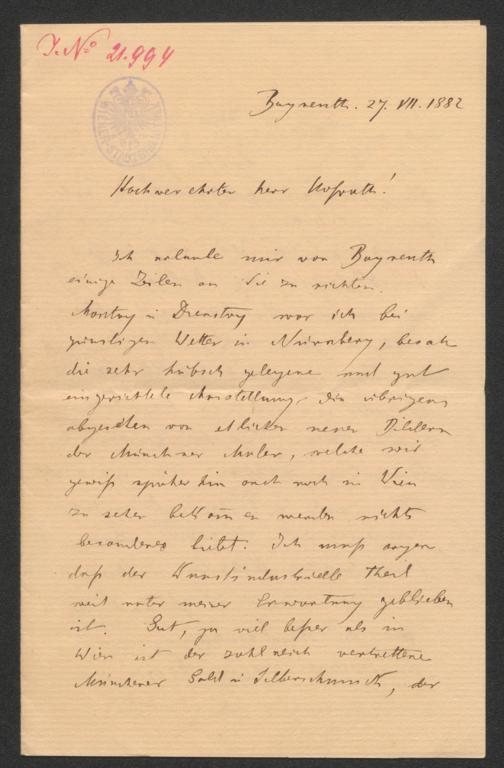 J. No 21.994
Bayreuth. 27. VII. 1882
Hochverehrter Herr Hofrath!
Ich erlaube mir von Bayreuth
einige Zeilen an Sie zu richten.
Montag u Dienstag war ich bei
günstigem Wetter in Nürnberg, besah
die sehr hübsch gelegene und gut
eingerichtete Ausstellung, die übrigens
abgesehen von etlichen neuen Bildern
der Münchner Maler, welche wir
gewiß späterhin auch noch in Wien
zu sehen bekom̅en werden nichts
besonderes bietet. Ich muß sagen
daß der Kunstindustrielle Theil
weit unter meiner Erwartung geblieben
ist. Gut, ja viel beßer als in
Wien ist der zahlreich vertrettene
Münchener Gold u Silberschmuck, der